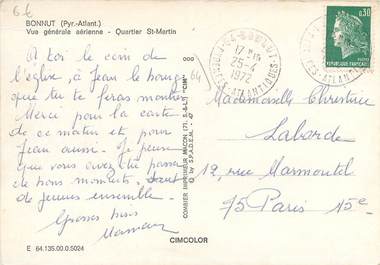 6 €
BONNUT (Pyr.-Atlant.)
Vue générale aérienne - Quartier St-Martin
A toi le coin de
l'église, à Jean le
que tu te feras montrer
Merci pour la carte
de ce matin et pour
Jean aussi. Je pense
que vous avez dû passer
de bons moments,
de jeunes ensemble.
Grosses bises
Maman
COMBIER IMPRIMEUR MACON (71, S.-&-L.) "CIM"
© by S.P.A.D.E.M. - 47
64
BONNUT
17 H
25-4
1972
PYRÉNÉES-ATLANTIQUES
0,30
REPUBLIQUE FRANÇAISE
Mademoiselle Christine
Laborde
12, rue Marmontel
75 Paris 15e
CIMCOLOR
E 64.135.00.0.5024